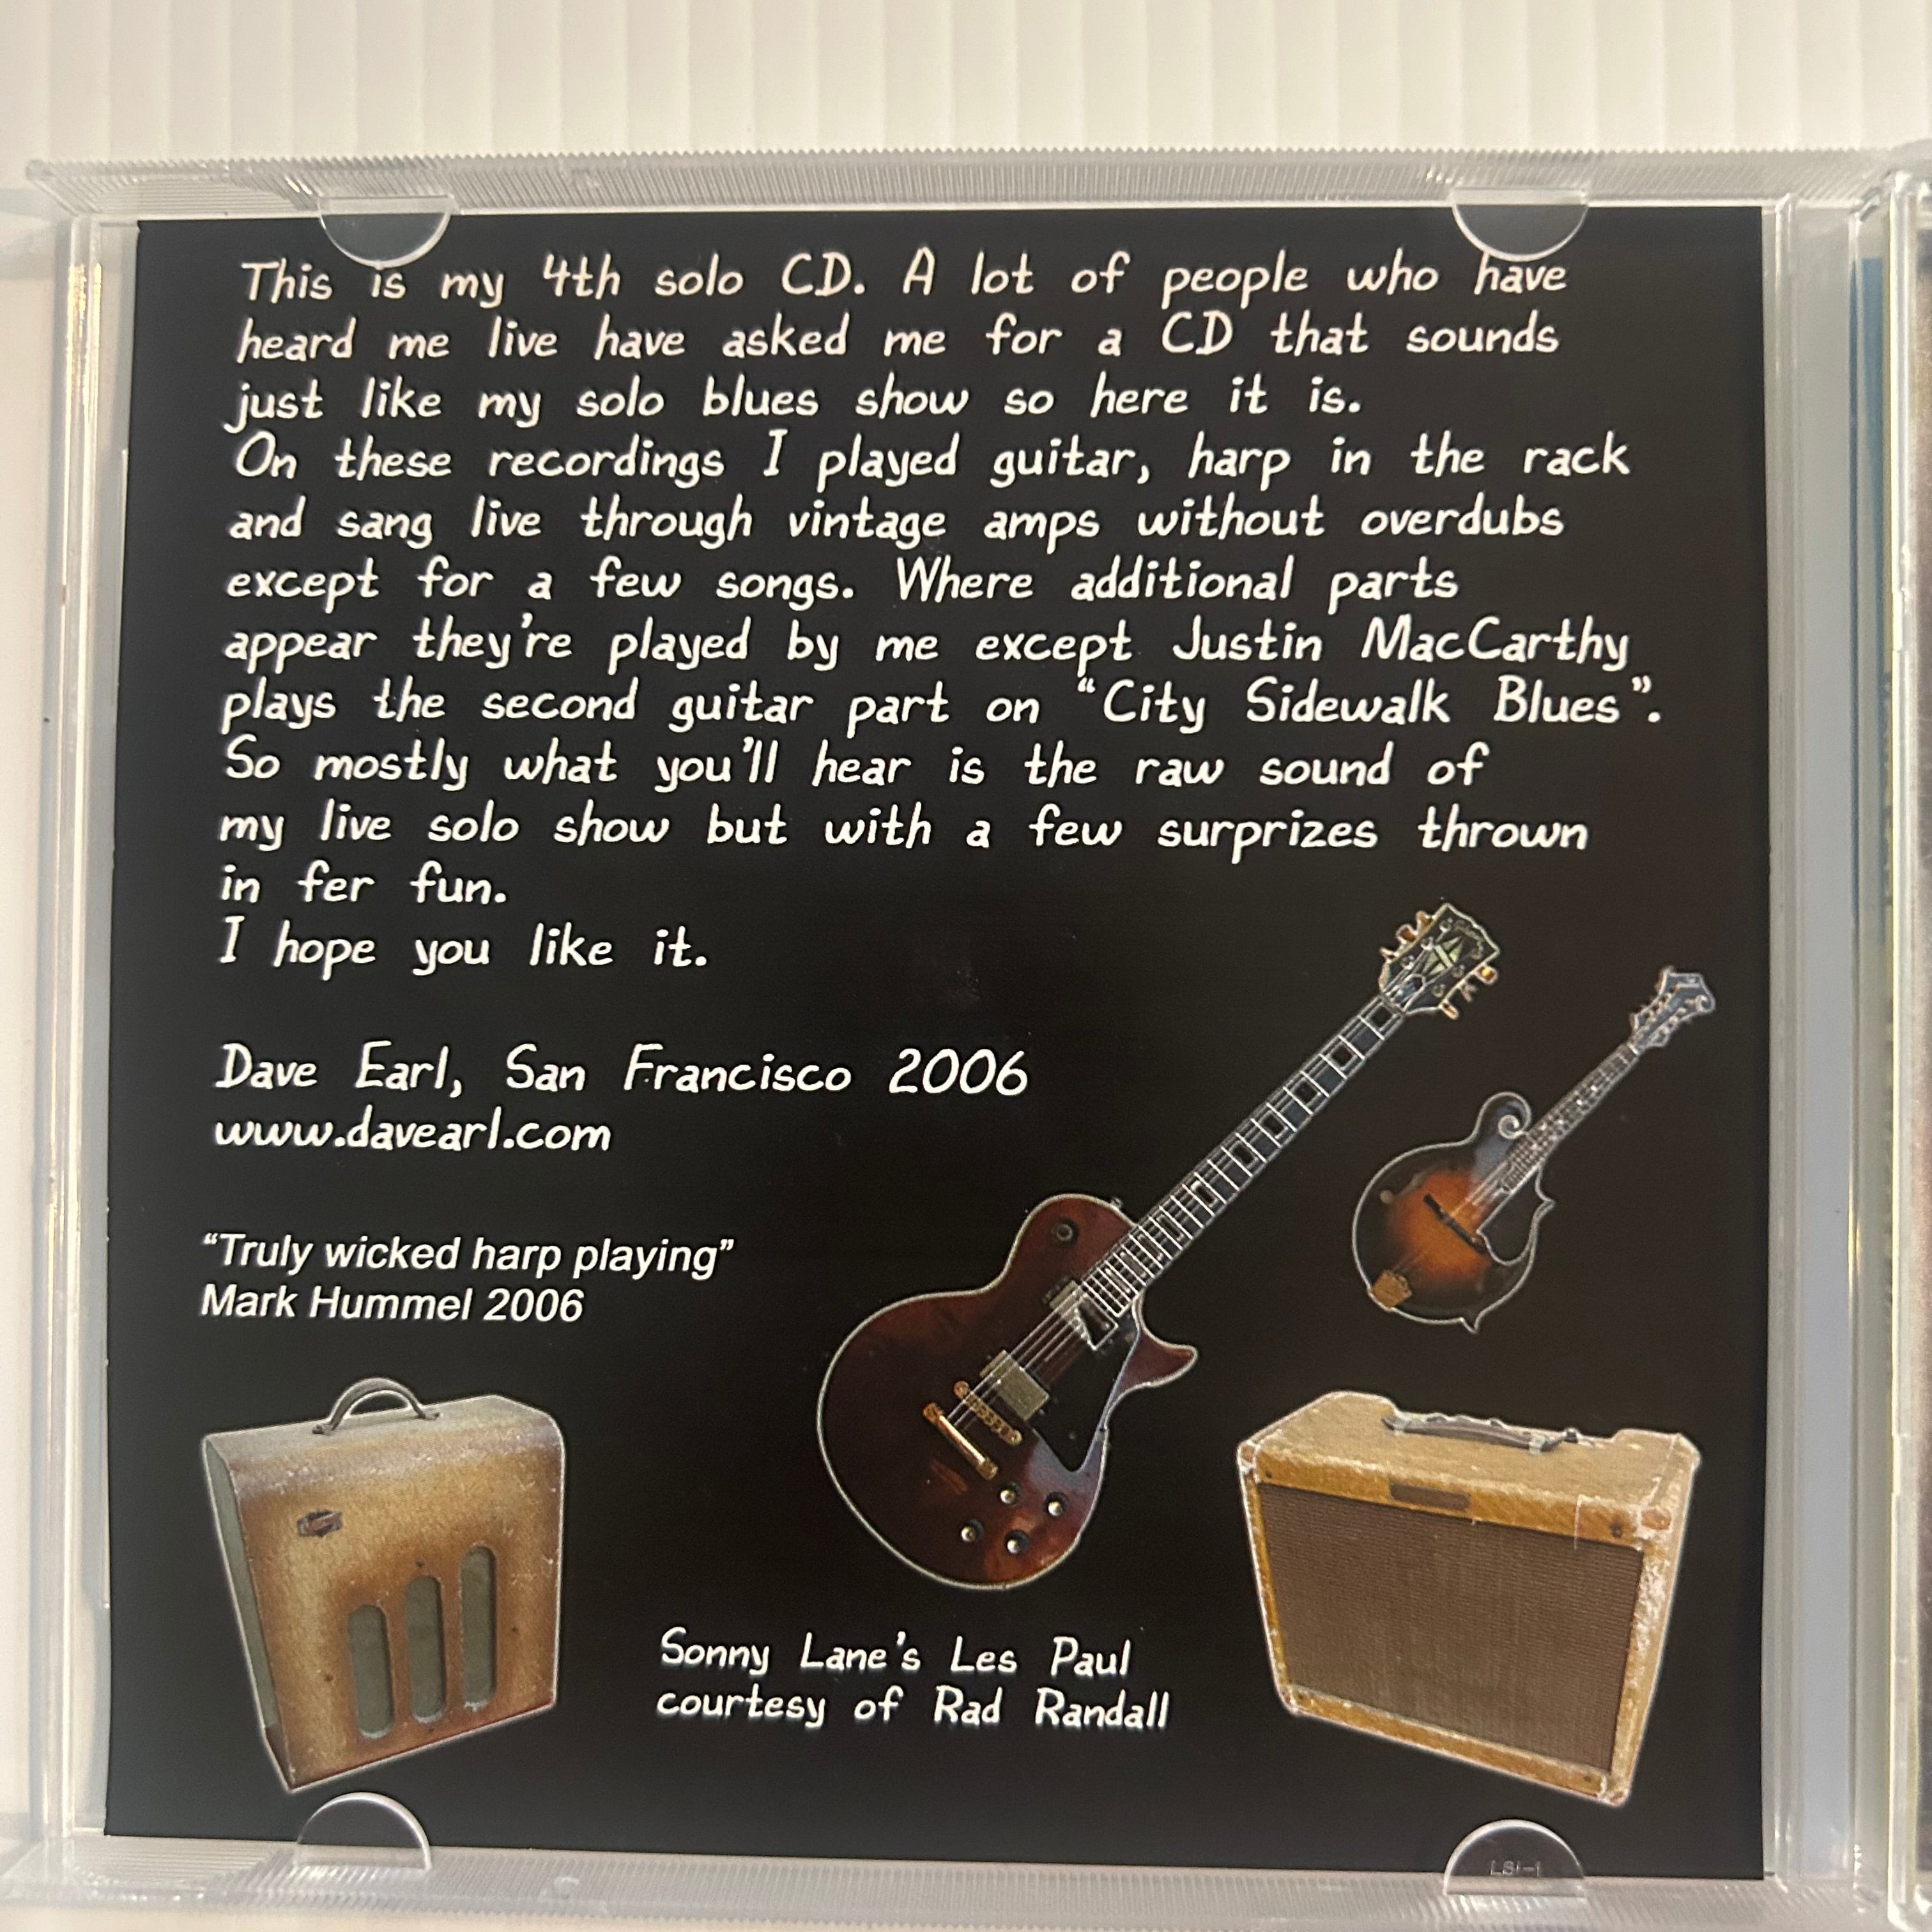 This is my 4th solo CD. A lot of people who have
heard me live have asked me for a CD that sounds
just like my solo blues show so here it is.
On these recordings I played guitar, harp in the rack
and sang live through vintage amps without overdubs
except for a few songs. Where additional parts
appear they're played by me except Justin MacCarthy
plays the second guitar part on "City Sidewalk Blues".
So mostly what you'll hear is the raw sound of
my live solo show but with a few surprizes thrown
in fer fun.
I hope you like it.
Dave Earl, San Francisco 2006
www.davearl.com
“Truly wicked harp playing”
Mark Hummel 2006
Sonny Lane's Les Paul
courtesy of Rad Randall